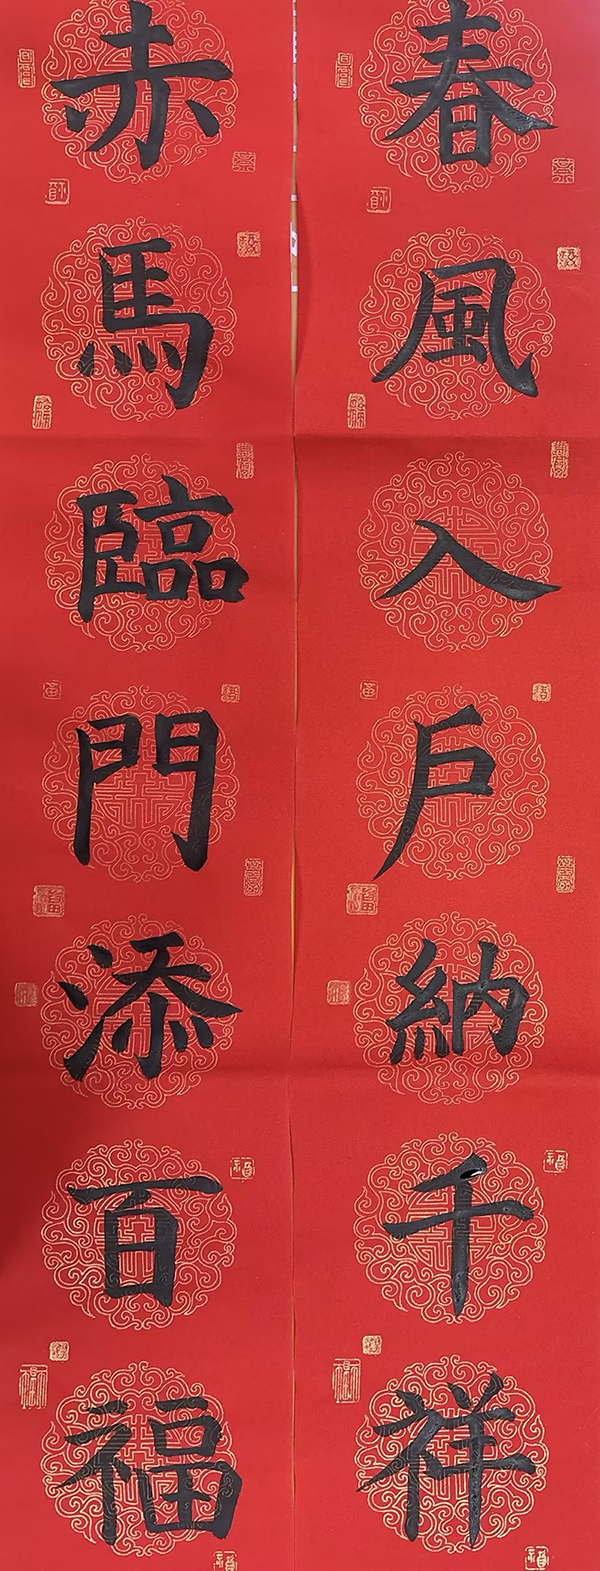 春風入戶納千祥
赤馬臨門添百福